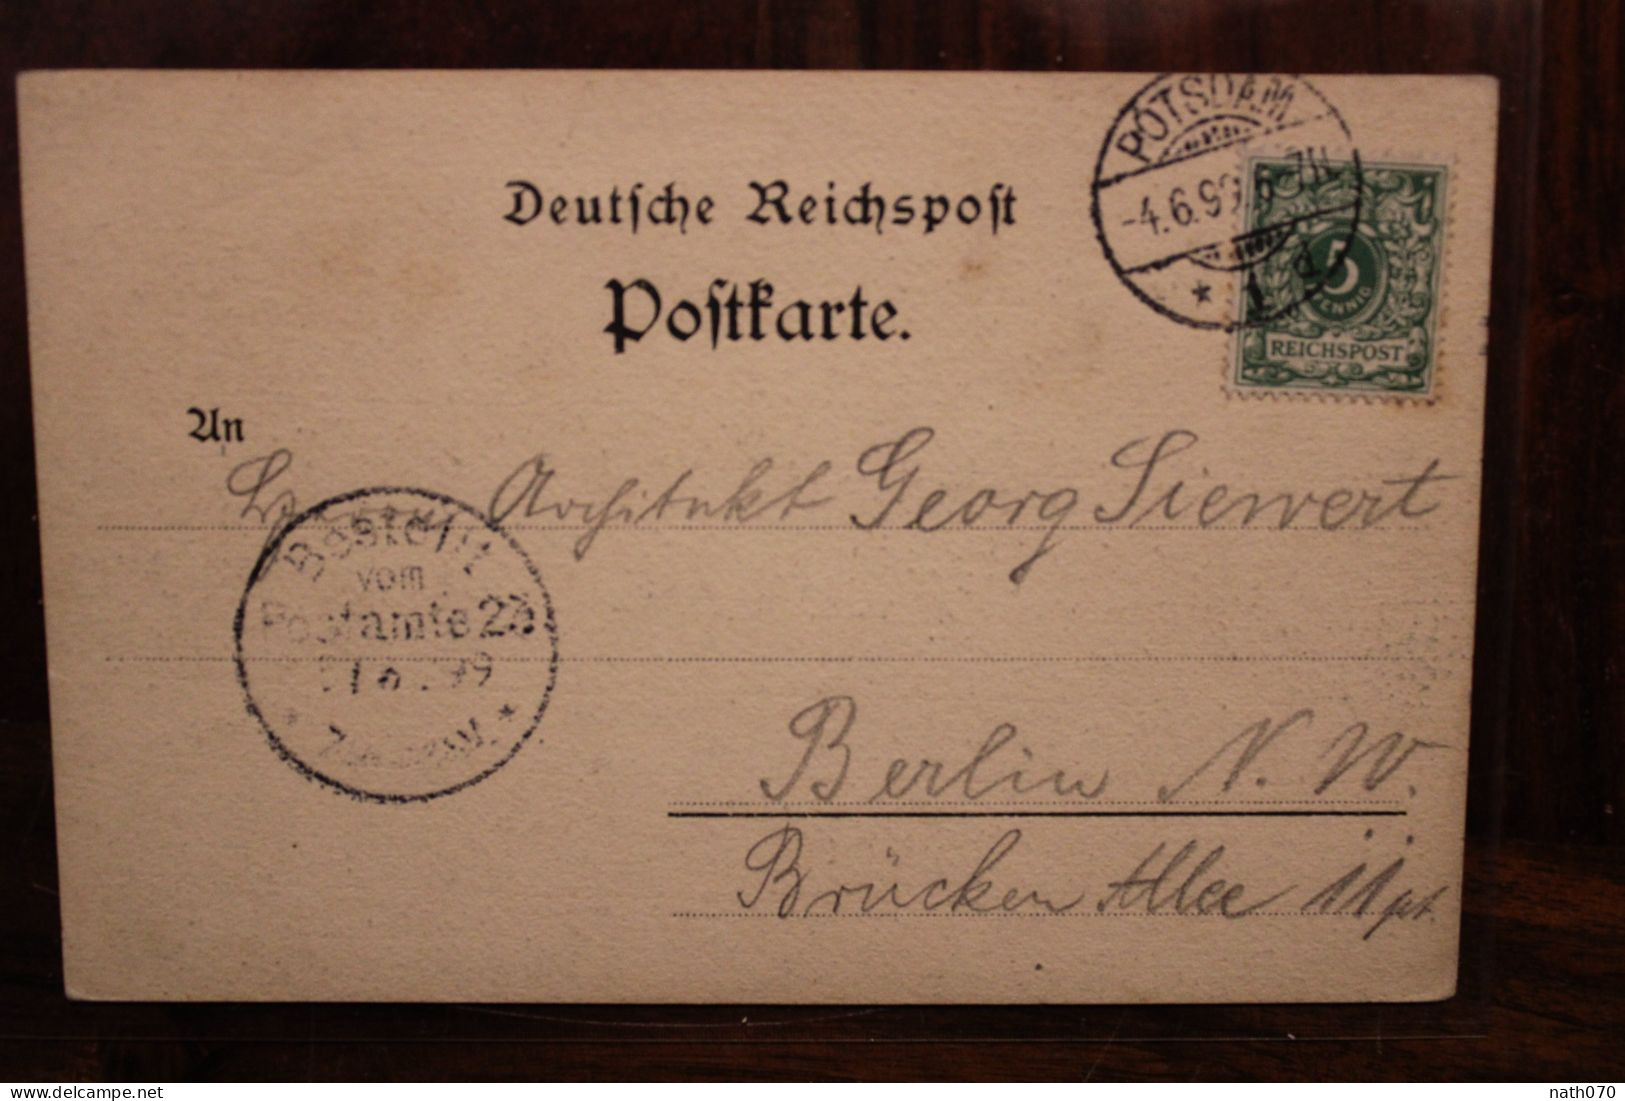 Deutsche Reichspost
Postkarte.
POTSDAM
-4.6.99. 6-7N.
* 1
5
PFENNIG
REICHSPOST
An
Architekt Georg Siewert
Bestellt
vom
Postamte 23
99
Berlin N. W.
Brücken Allee 11 pt.
nath070